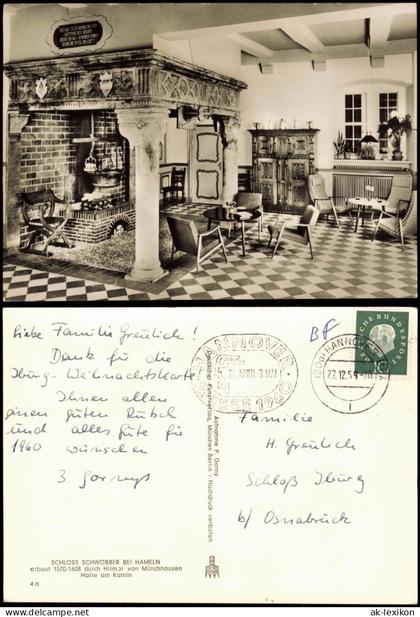 Liebe Familie Greulich!
Dank für die
Iburg-Weihnachtskarte.
Ihnen allen
einen guten Rutsch
und alles Gute für
1960 wünschen
3 Gornys
SCHLOSS SCHWÖBBER BEI HAMELN
erbaut 1570-1608 durch Hilmar von Münchhausen
Halle am Kamin
4a
Aufnahme P. Gorny
Deutscher Kunstverlag, München Berlin / Nachdruck verboten
HANNOVER
APRIL-3.MAI
MESSE 1960
BF
(20a) HANNOVER
27.12.59
DEUTSCHE BUNDESPOST
Familie
H. Greulich
Schloß Iburg
b/ Osnabrück
ak-ansichtskarten.de